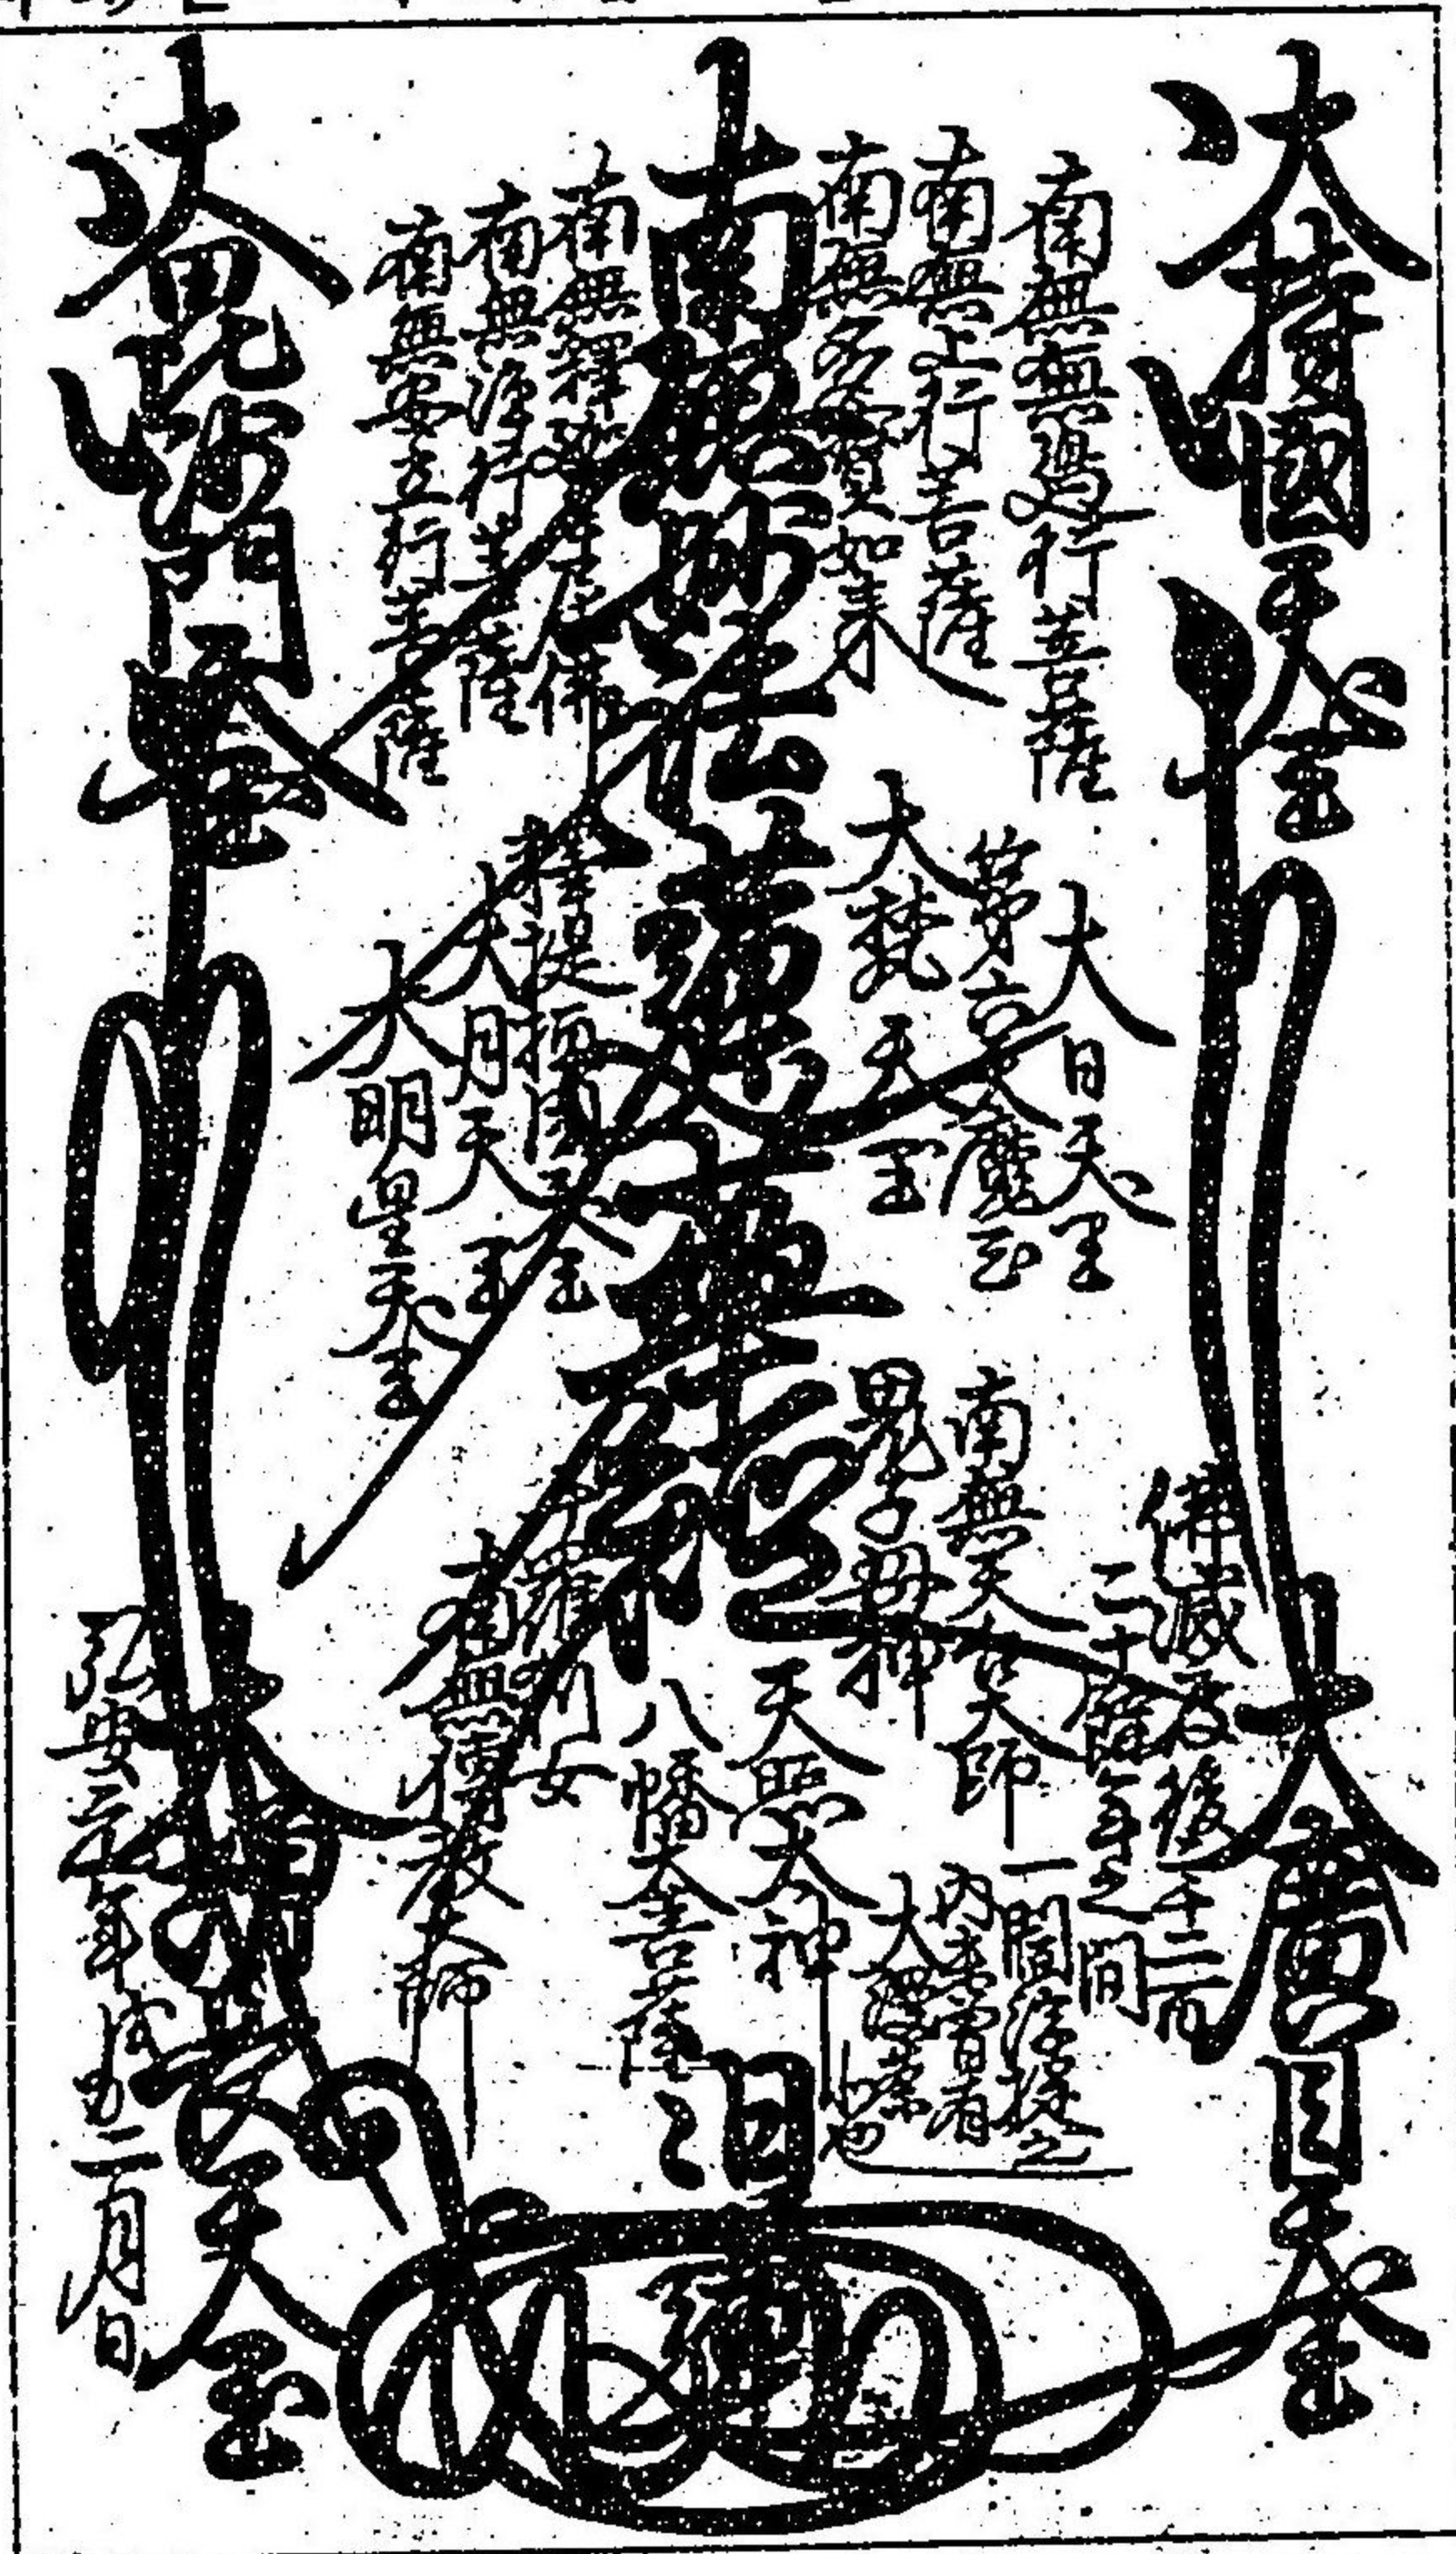 大持國天王
南無無邊行菩薩
南無上行菩薩
南無多寳如来
南無妙法蓮華經
南無釋迦牟尼佛
南無淨行菩薩
南無安立行菩薩
大毘沙門天王
大日天王
第六天魔王
大梵天王
釋提桓因天王
大月天王
大明星天王
佛滅度後二千二百
二十餘年之間
一閻浮提之
内未曽有
大漫荼
羅也
南無天台大師
鬼子母神
天照太神
八幡大菩薩
十羅刹女
南無傳教大師
大廣目天王
日蓮
大増長天王
弘安三年 二月日